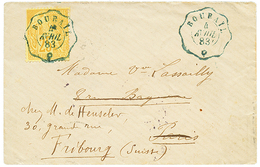 BOURAIL
4
AVRIL
83
BOURAIL
4
AVRIL
83
Madame Vve Lassailly
chez M. de Heuseler
30, grand rue, Paris
Fribourg (Suisse)